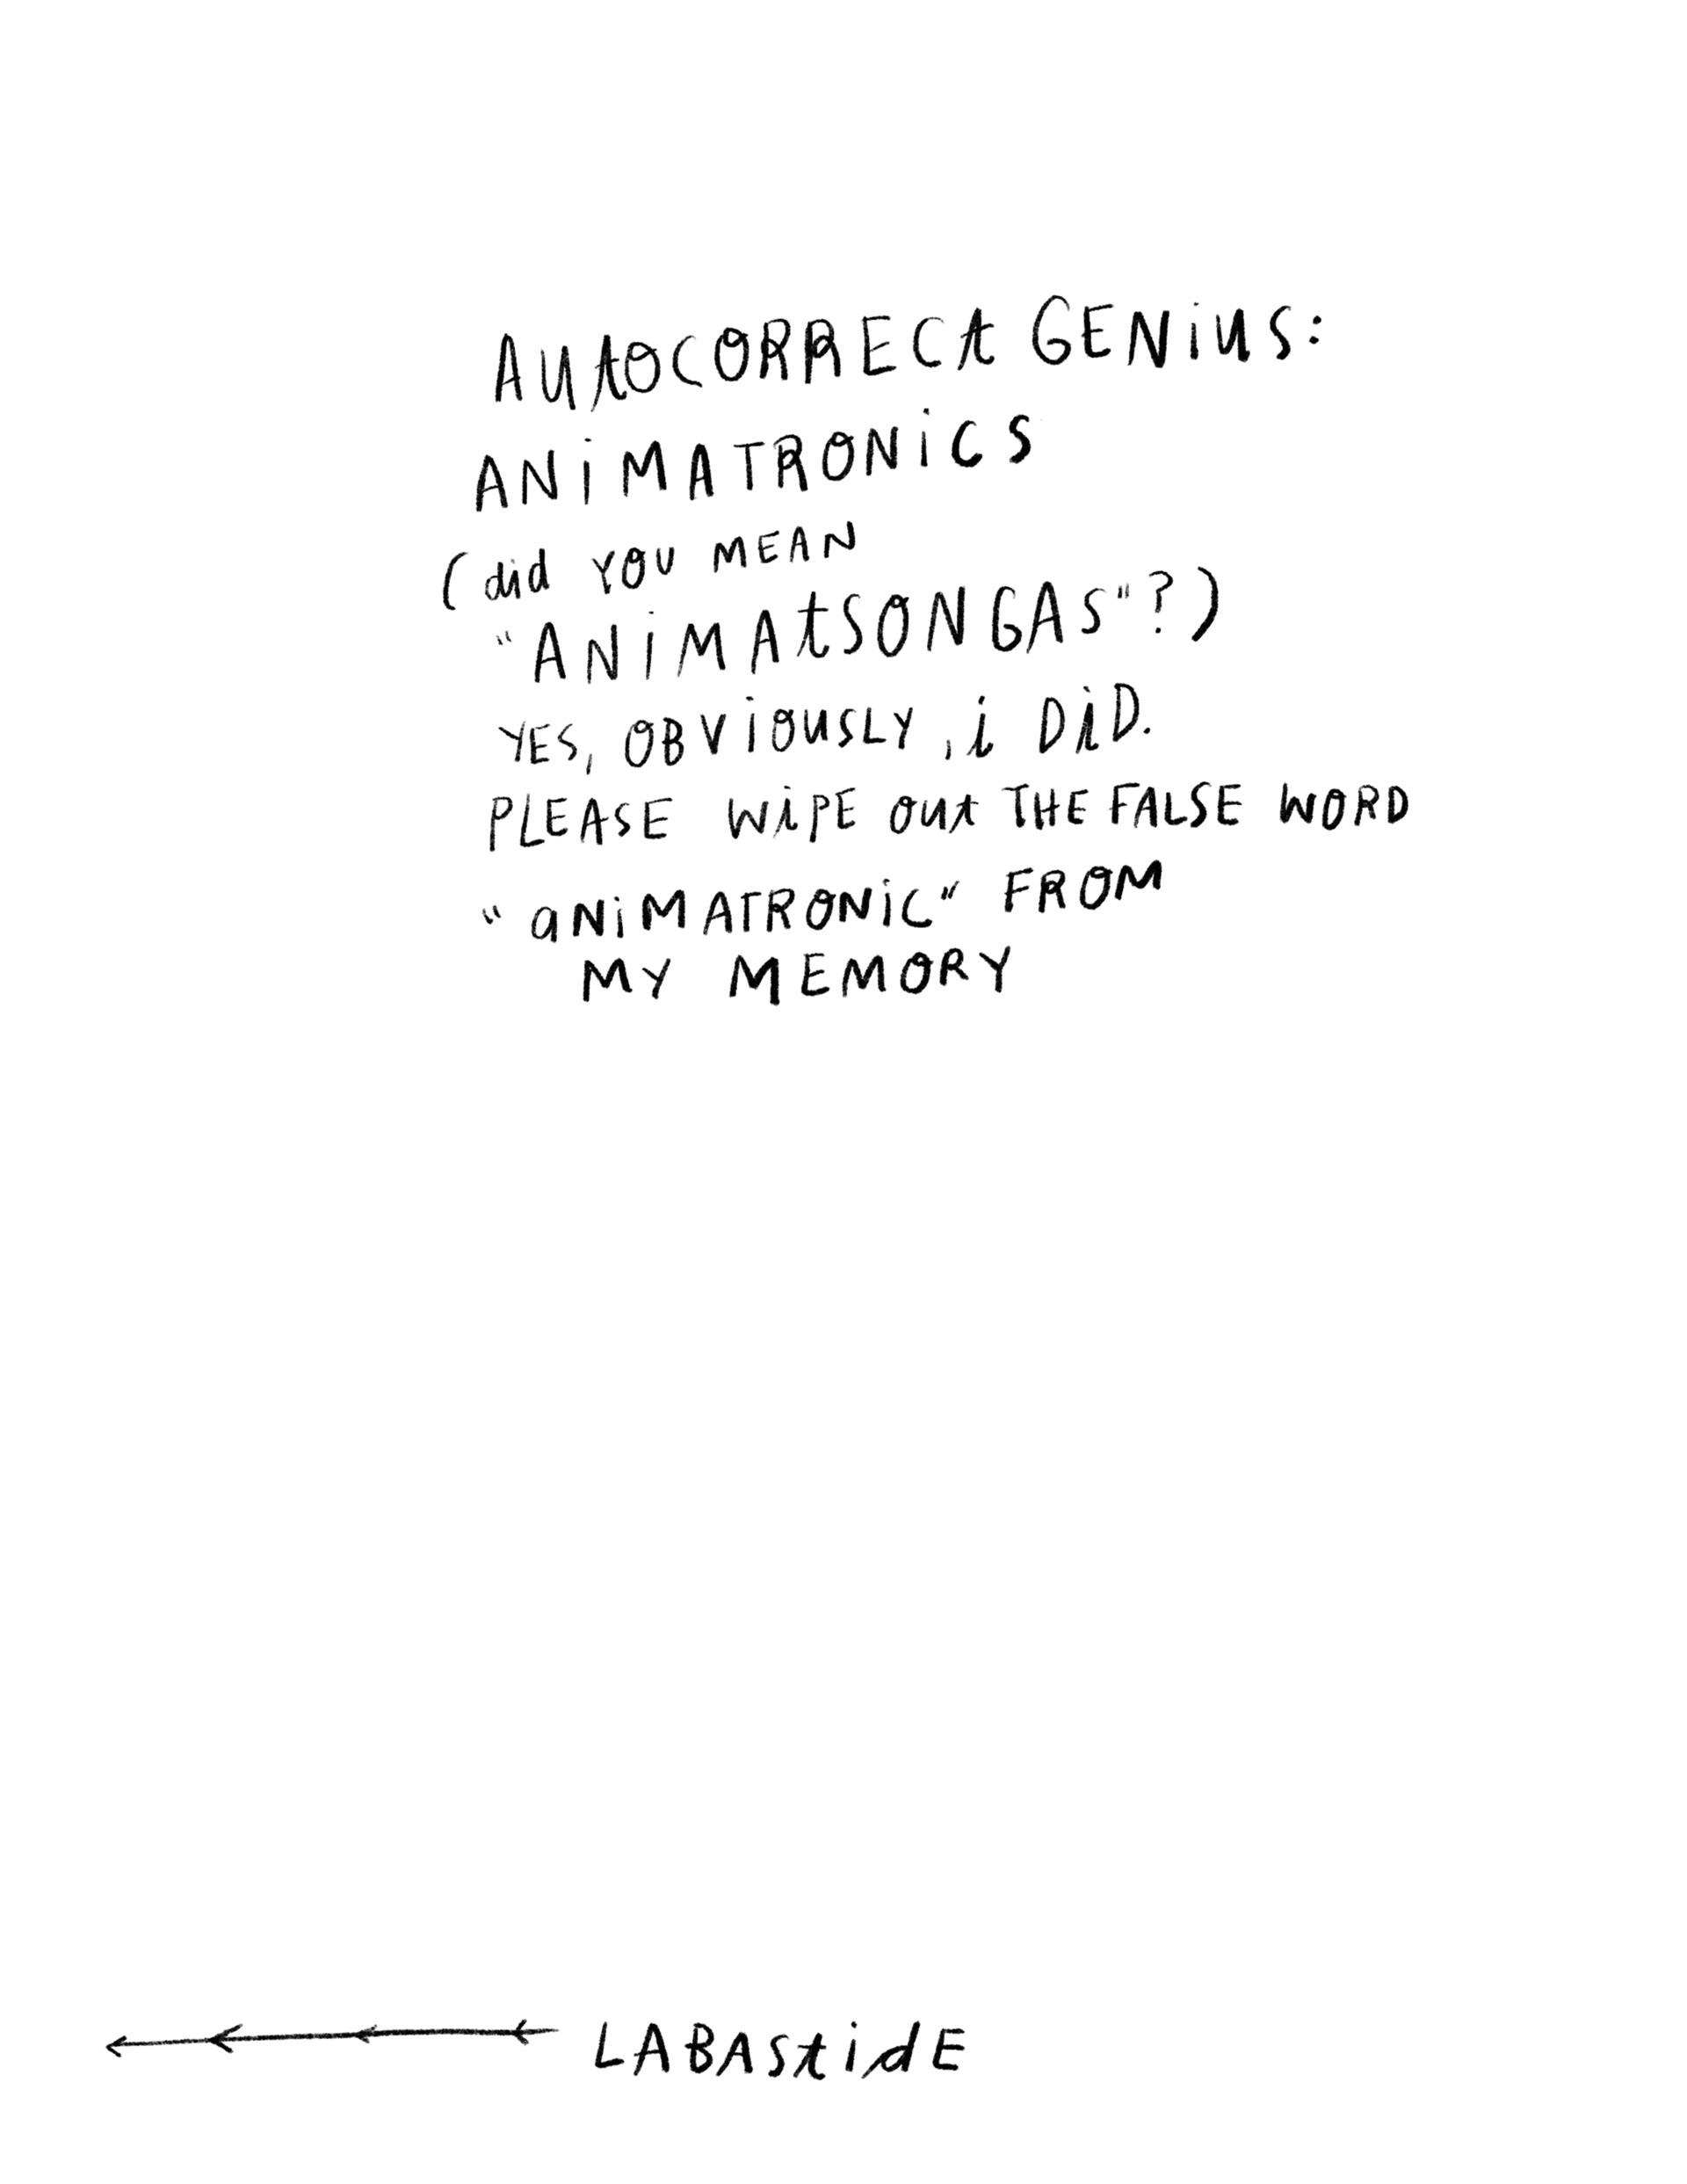 AUtOCORRECt GENiUS:
ANiMATRONiCS
(did YOU MEAN
"ANiMAtSONGAS"?)
YES, OBViOUSLY, i DiD.
PLEASE WiPE OUt THE FALSE WORD
"aNiMATRONiC" FROM
MY MEMORY
LABAStidE